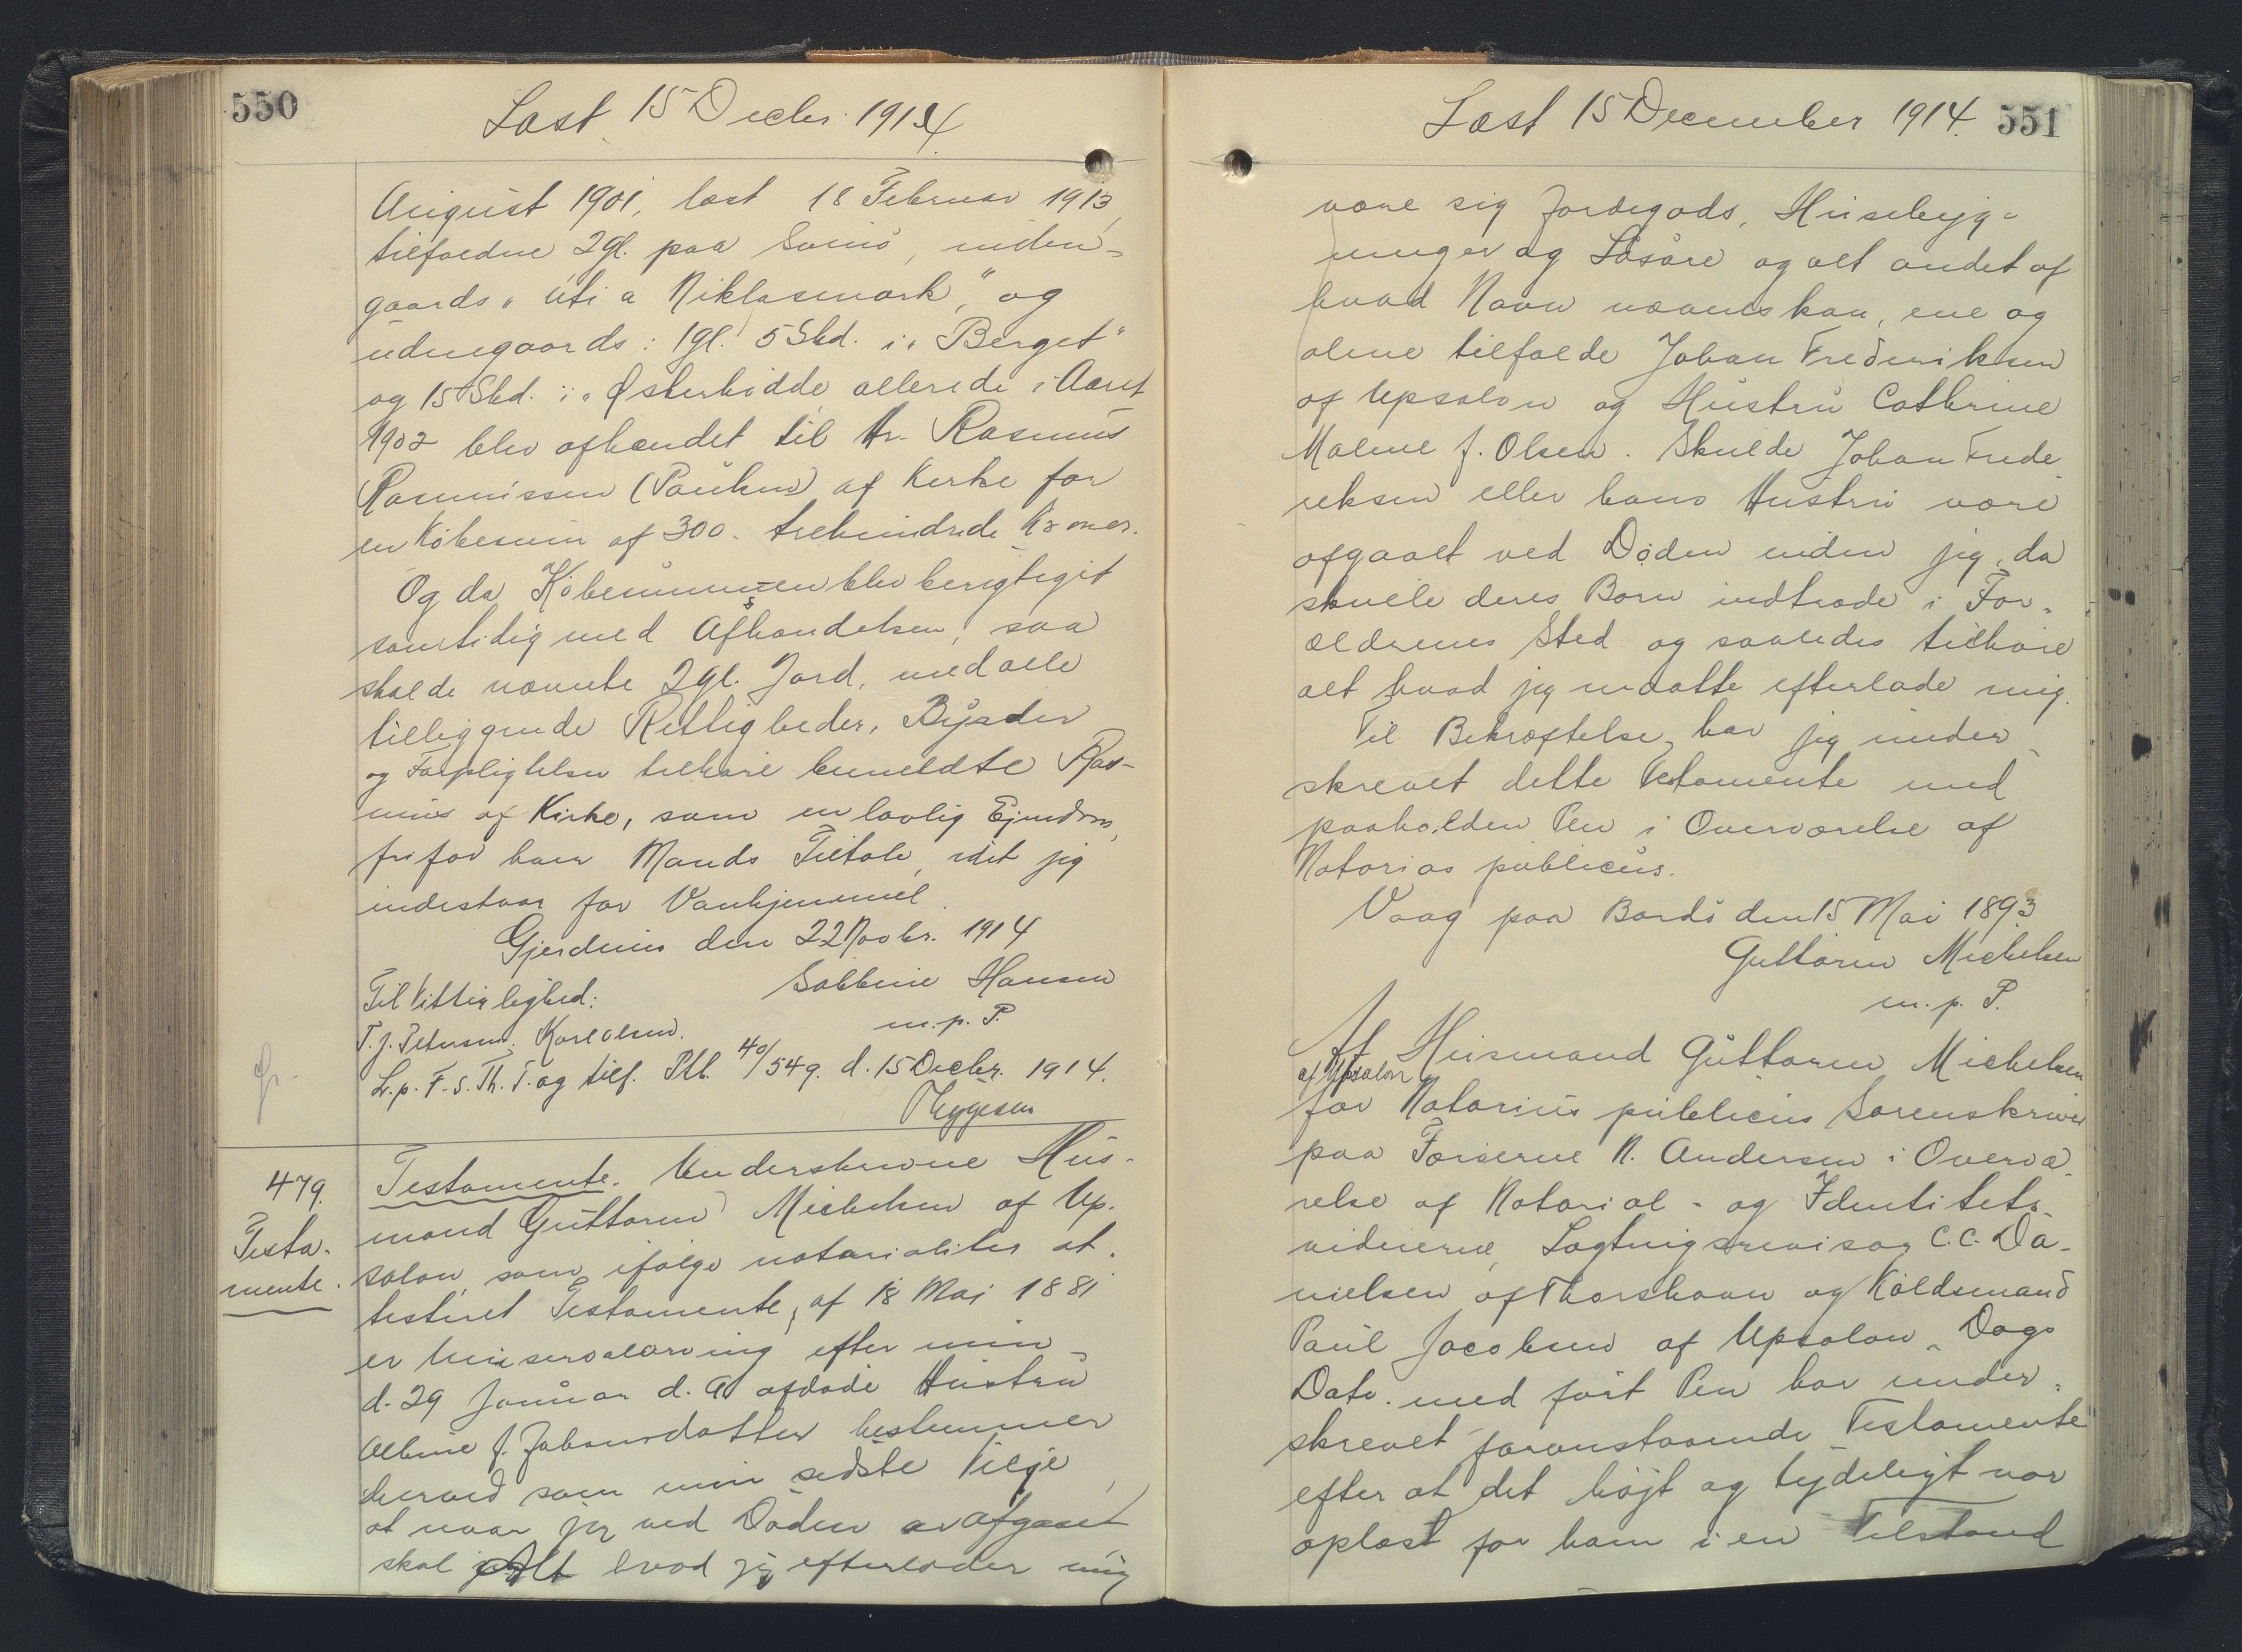 550
Læst 15 Decbr. 1914
August 1901, læst 18 Februar 1913,
tilfaldne 2 gl. paa Svinø, inden-
gaards "úti a Niklasmørk," og
udengaards: 1 gl. 5 Skd. i "Berget"
og 15 Skd. i "Østerhidde allerede i Aaret
1902 blev afhændet til Hr. Rasmus
Rasmussen (Paulsen) af Kirke for
en Købesum af 300. trehundrede Kroner.
Og da Købesummen blev berigtiget
samtidig med Afhændelsen, saa
skal de nævnte 2 gl. Jord, med alle
tilliggende Rettigheder, Byrder
og Forpligtelser tilhøre bemeldte Ras-
mus af Kirke, som en lovlig Ejendom,
fri for hver Mands Tiltale, idet jeg
indestaar for Vanhjemmel.
Gjerdum den 22 Novbr. 1914
Til Vitterlighed: Sabbine Hansen
T. J. Petersen. Karl Olsen. m. p. P.
L. p. F. S. Th. T. og tilf. Ptb. 40/549. d. 15 Decbr. 1914.
479.
Testa-
mente.
Testamente. Underskrevne Hus-
mand Guttorm Michelsen af Up-
salon, som ifølge notarialiter at-
testeret Testamente, af 18 Maj 1881
er Universalarving efter min
d. 29 Januar d. A. afdøde Hustru
Albine f. Johansdatter bestemmer
herved som min sidste Vilje,
at naar jeg ved Døden er afgaaet
skal Alt hvad jeg efterlader mig
Læst 15 December 1914. 551
være sig Jordegods, Husebyg-
ninger og Løsøre og alt andet af
hvad Navn nævnes kan, ene og
alene tilfalde Johan Frederiksen
af Upsalon og Hustru Cathrine
Malene f. Olsen. Skulde Johan Frede
riksen eller hans Hustru være
afgaaet ved Døden inden jeg, da
skulle deres Børn indtræde i For-
ældrenes Sted og saaledes tilhøre
alt hvad jeg maatte efterlade mig.
Til Bekræftelse har jeg under-
skrevet dette Testamente med
paaholden Pen i Overværelse af
Notarias publicus.
Vaag paa Bordø den 15 Mai 1893
Guttorm Michelsen
m. p. P.
At Husmand Guttorm Michelsen
af Upsalon
for Notarius publicus Sorenskriver
paa Færøerne N. Andersen i Overvæ-
relse af Notarial- og Identitets-
vidnerne, Lagtingsrevisor C. C. Da-
nielsen af Thorshavn og Köldsmand
Paul Jacobsen af Upsalon Dags
Dato med ført Pen har under-
skrevet foranstaaende Testamente
efter at det højt og tydeligt var
oplæst for ham i en Tilstand